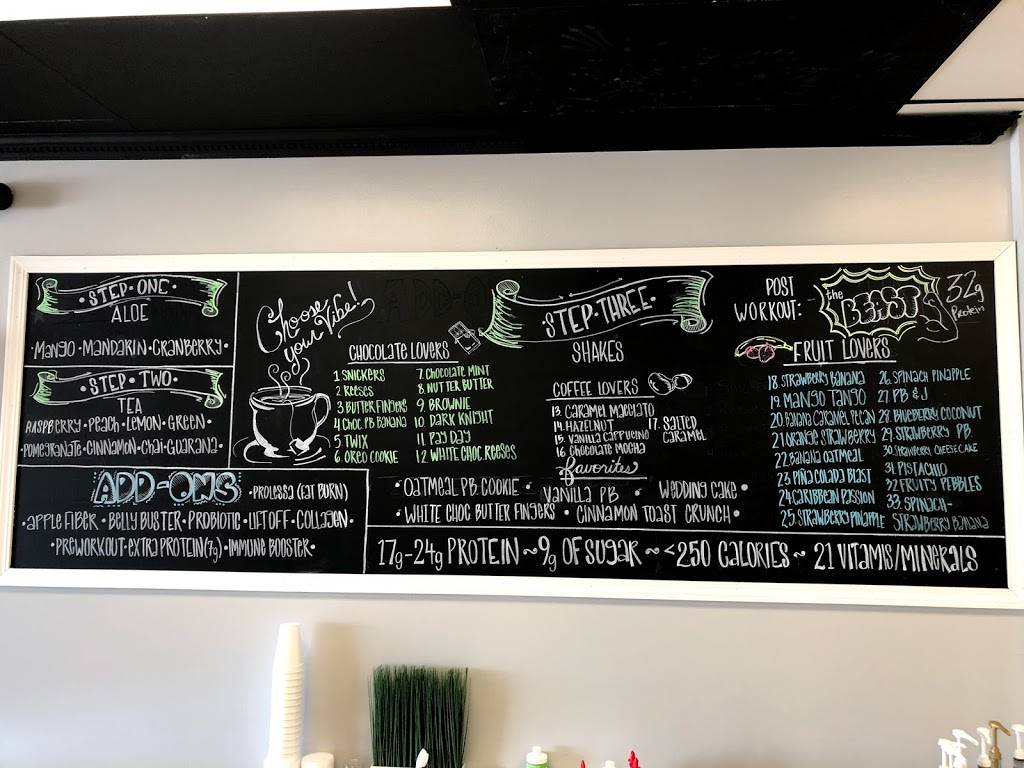 STEP·ONE
ALOE
·MANGO·MANDARIN·CRANBERRY·
·STEP·TWO·
TEA
RASPBERRY·PEACH·LEMON·GREEN·
POMEGRANATE·CINNAMON·CHAI·GUARANA·
ADD-ONS
·PROLESSA (FAT BURN)
·APPLE FIBER·BELLY BUSTER·PROBIOTIC·LIFTOFF·COLLAGEN·
·PREWORKOUT·EXTRA PROTEIN(7g)·IMMUNE BOOSTER·
Choose your Vibe!
CHOCOLATE LOVERS
1. SNICKERS
2 REESES
3 BUTTER FINGERS
4 CHOC PB BANANA
5 TWIX
6. OREO COOKIE
7. CHOCOLATE MINT
8 NUTTER BUTTER
9. BROWNIE
10 DARK KNIGHT
11 PAY DAY
12 WHITE CHOC REESES
·STEP·THREE·
SHAKES
COFFEE LOVERS
13. CARAMEL MACCIATO
14. HAZELNUT
15. VANILLA CAPPUCINO
16. CHOCOLATE MOCHA
17. SALTED CARAMEL
favorites
·OATMEAL PB COOKIE· VANILLA PB · WEDDING CAKE·
·WHITE CHOC BUTTER FINGERS· CINNAMON TOAST CRUNCH·
POST
WORKOUT:
the BEAST
32g
Protein
FRUIT LOVERS
18 STRAWBERRY BANANA
19. MANGO TANGO
20. BANANA CARAMEL PECAN
21 ORANGE STRAWBERRY
22 BANANA OATMEAL
23 PIÑA COLADA BLAST
24 CARIBBEAN PASSION
25. STRAWBERRY PINEAPPLE
26. SPINACH PINAPPLE
27. PB & J
28. BLUEBERRY COCONUT
29. STRAWBERRY PB
30. STRAWBERRY CHEESECAKE
31. PISTACHIO
32 FRUITY PEBBLES
33. SPINACH-
STRAWBERRY BANANA
17g-24g PROTEIN ~ 9g OF SUGAR ~ <250 CALORIES ~ 21 VITAMIS/MINERALS